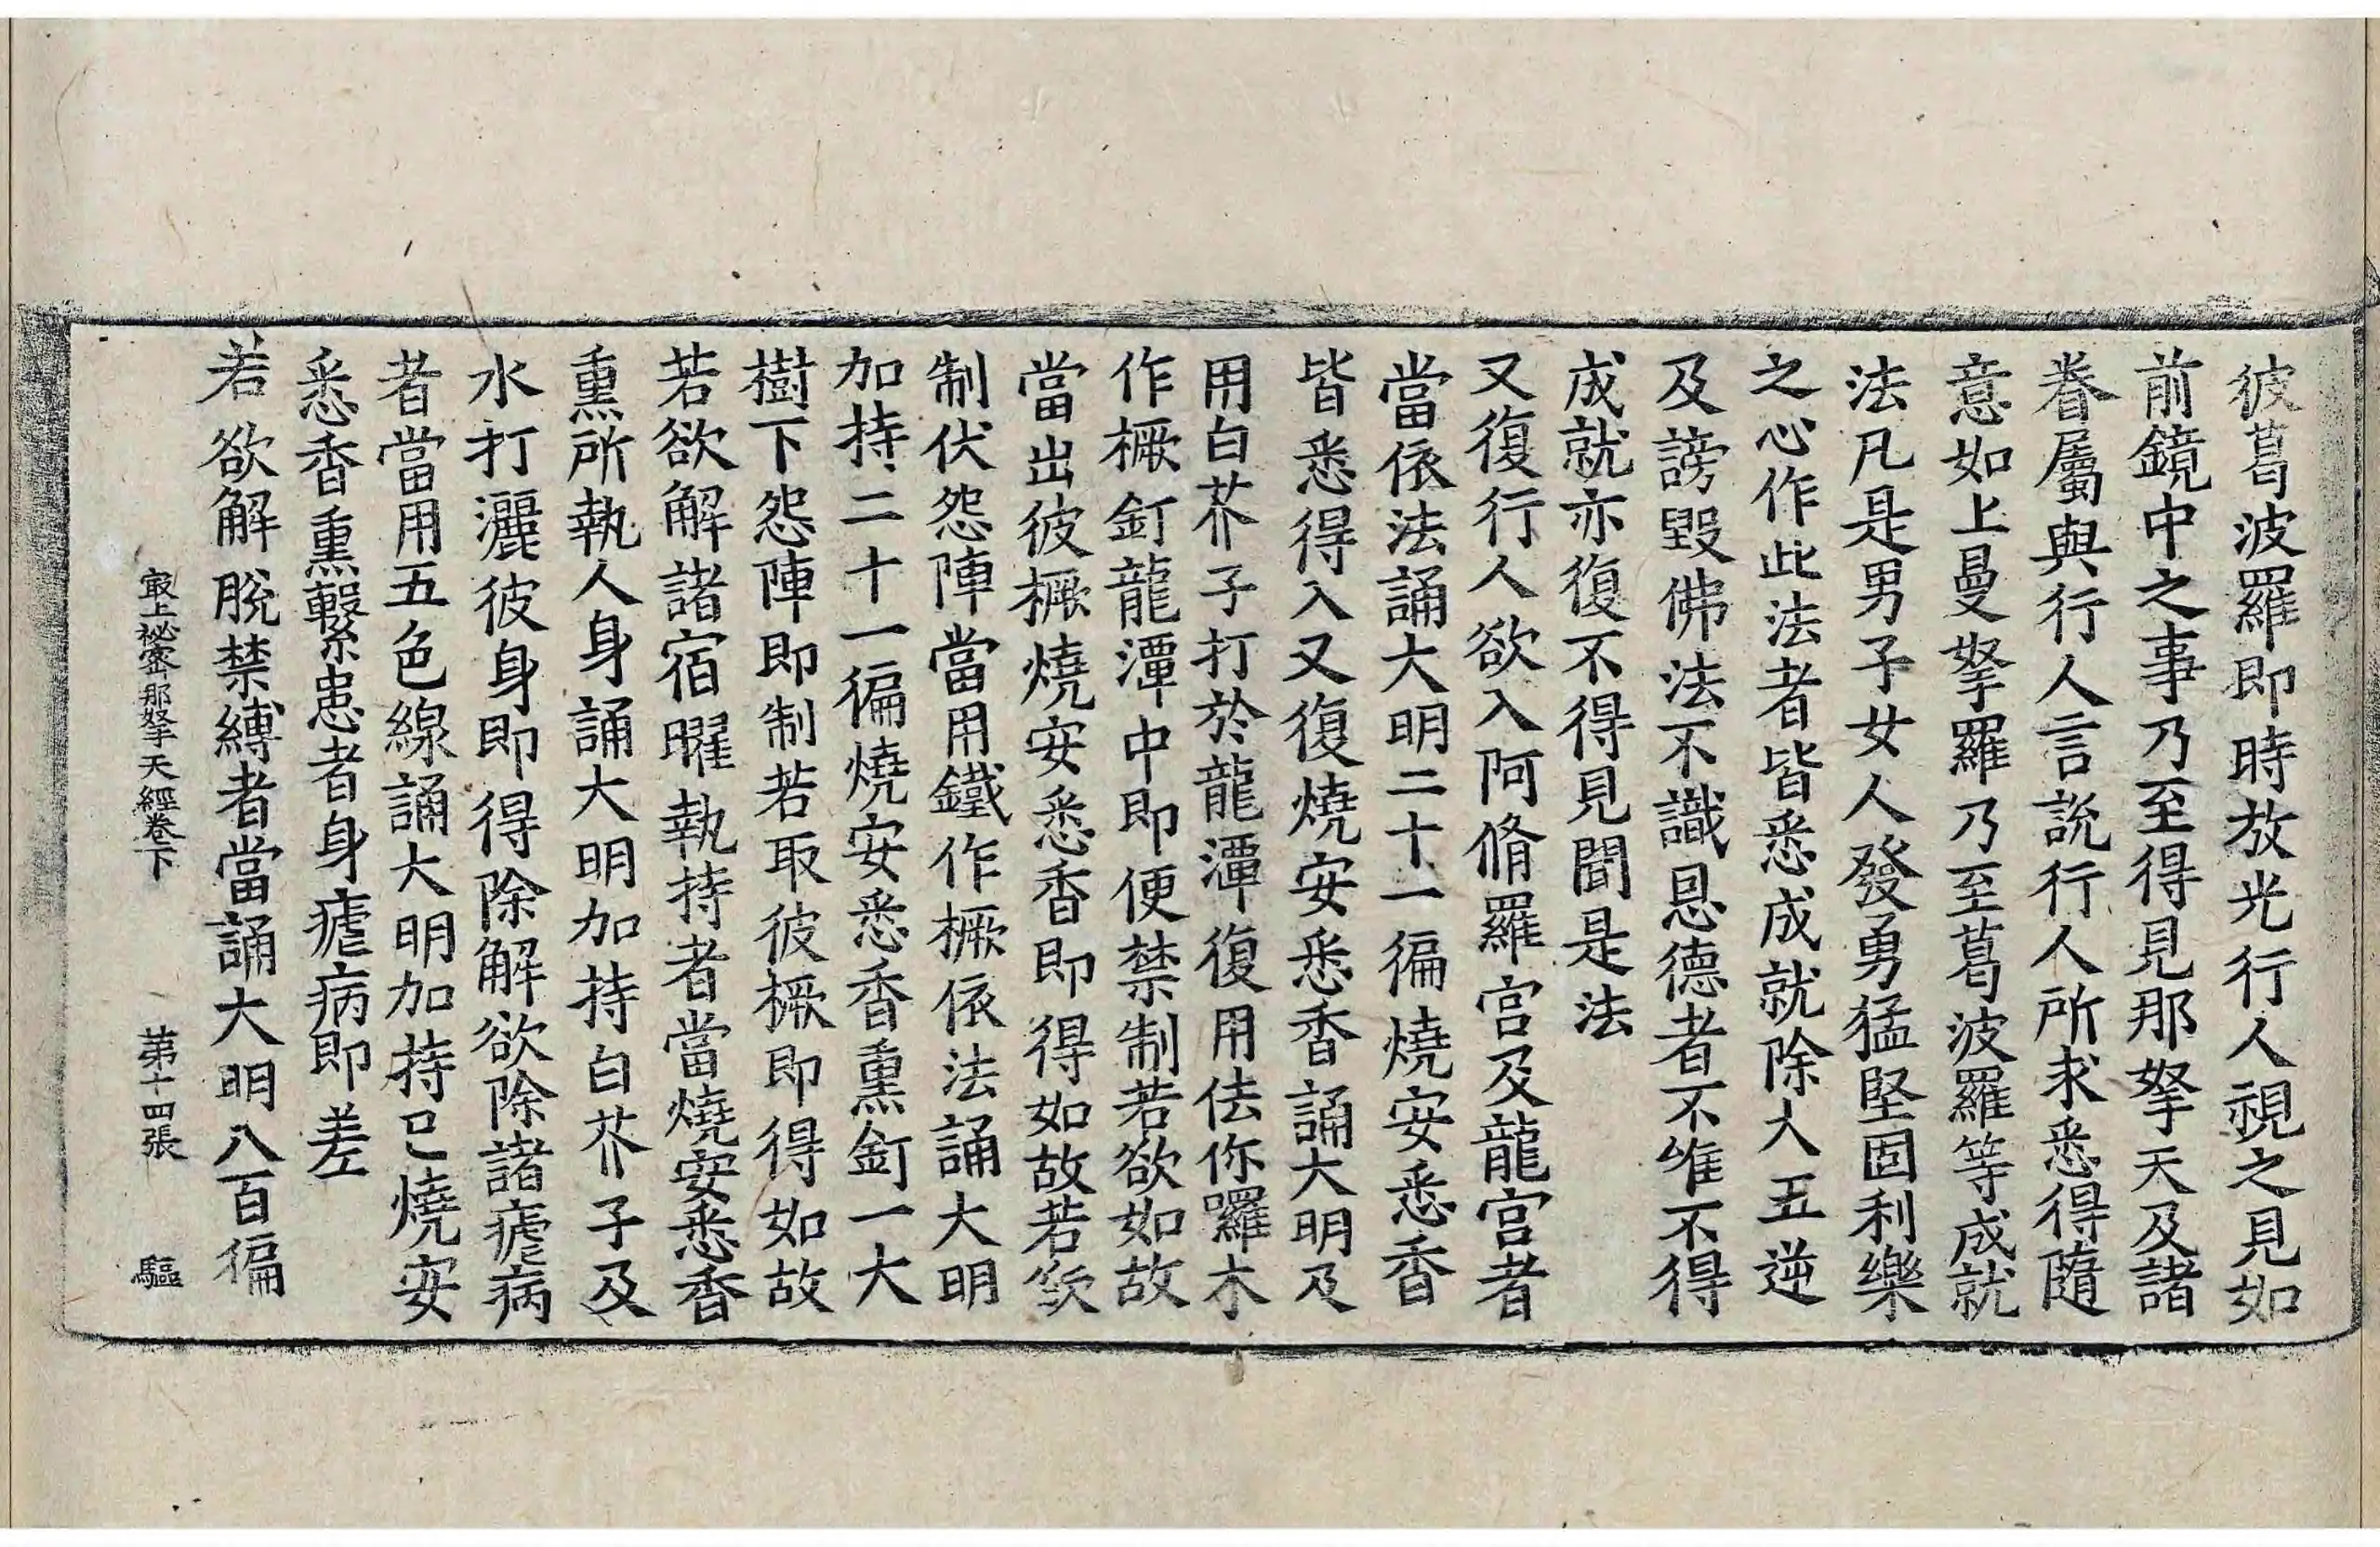 彼葛波羅即時放光行人視之見如
前鏡中之事乃至得見那拏天及諸
眷屬與行人言說行人所求悉得隨
意如上曼拏羅乃至葛波羅等成就
法凡是男子女人發勇猛堅固利樂
之心作此法者皆悉成就除大五逆
及謗毀佛法不識恩德者不唯不得
成就亦復不得見聞是法
又復行人欲入阿脩羅宮及龍宮者
當依法誦大明二十一徧燒安悉香
皆悉得入又復燒安悉香誦大明及
用白芥子打於龍潭復用佉你囉木
作橛釘龍潭中即便禁制若欲如故
當出彼橛燒安悉香即得如故若欲
制伏怨陣當用鐵作橛依法誦大明
加持二十一徧燒安悉香熏釘一大
樹下怨陣即制若取彼橛即得如故
若欲解諸宿曜執持者當燒安悉香
熏所執人身誦大明加持白芥子及
水打灑彼身即得除解欲除諸瘧病
者當用五色線誦大明加持已燒安
悉香熏繫患者身瘧病即差
若欲解脫禁縛者當誦大明八百徧
最上祕密那拏天經卷下 第十四張 驅